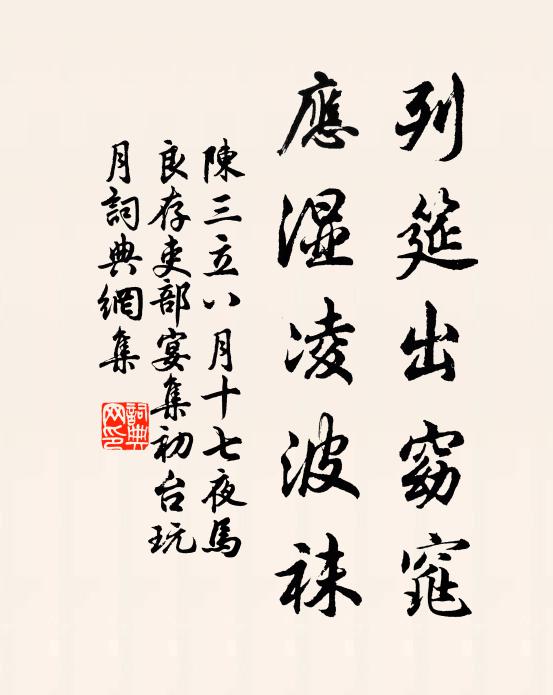 列筵出窈窕
應湿凌波袜
陳三立八月十七夜馬
良存吏部宴集初台玩
月詞典網集
詞典网印